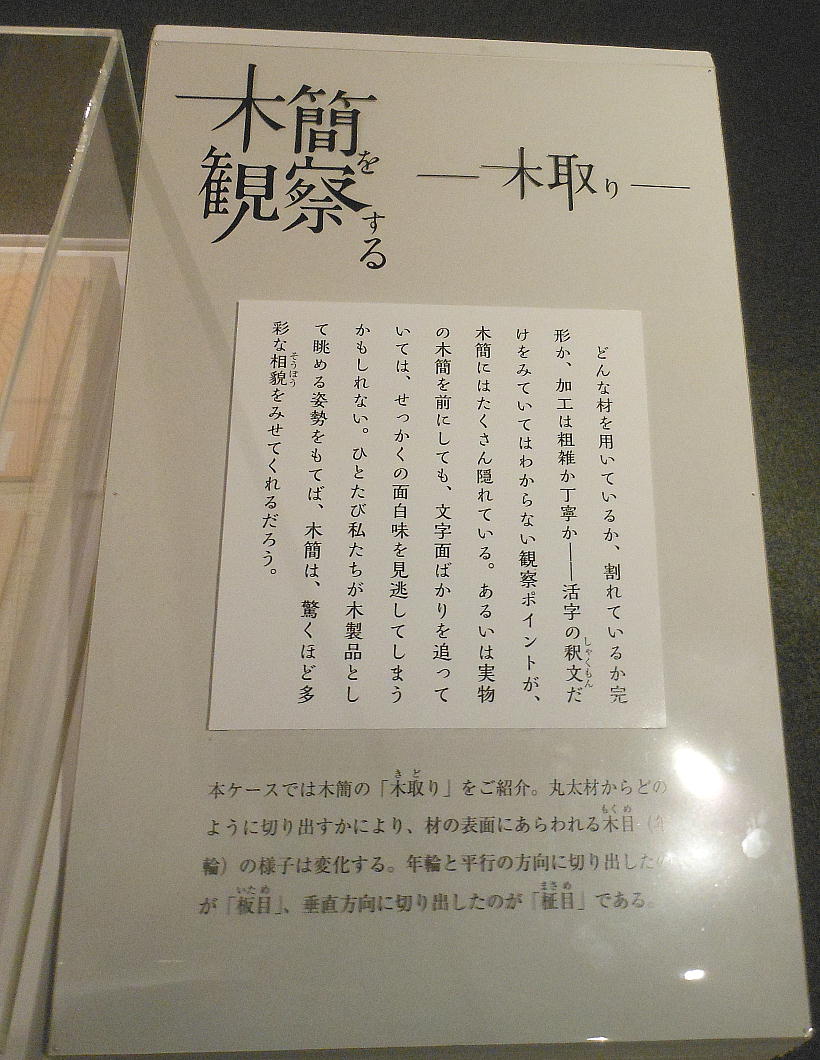 木簡を
観察する
―木取り―
どんな材を用いているか、割れているか完
形か、加工は粗雑か丁寧か――活字の釈文だ
しゃくもん
けをみていてはわからない観察ポイントが、
木簡にはたくさん隠れている。あるいは実物
の木簡を前にしても、文字面ばかりを追って
いては、せっかくの面白味を見逃してしまう
かもしれない。ひとたび私たちが木製品とし
て眺める姿勢をもてば、木簡は、驚くほど多
彩な相貌をみせてくれるだろう。
そうぼう
きど
本ケースでは木簡の「木取り」をご紹介。丸太材からどの
もくめ
ように切り出すかにより、材の表面にあらわれる木目（年
輪）の様子は変化する。年輪と平行の方向に切り出したの
いため
まさめ
が「板目」、垂直方向に切り出したのが「柾目」である。